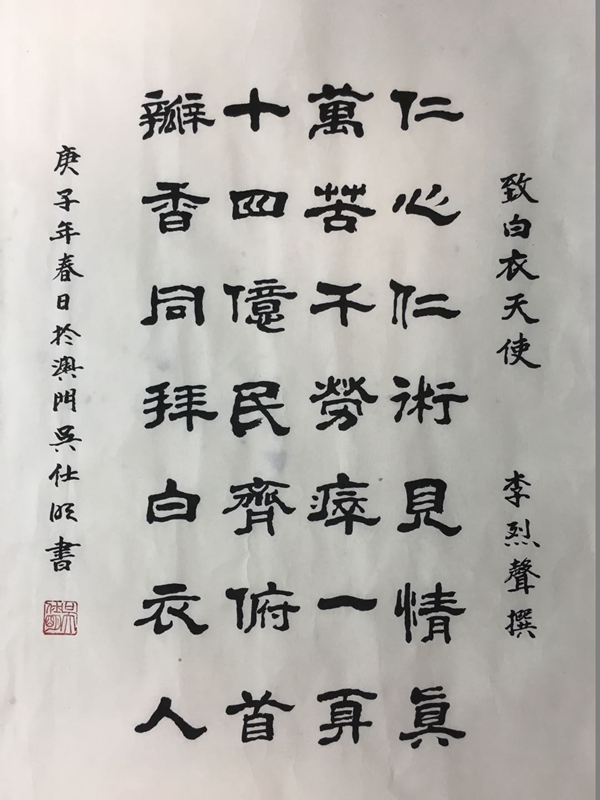 致白衣天使 李烈聲撰
仁心仁術見情眞
萬苦千勞瘁一身
十四億民齊俯首
瓣香同拜白衣人
庚子年春日於澳門吳仕明書